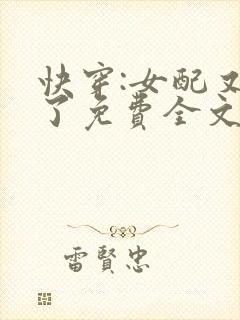 快穿:女配又
了免费全文
雷賢忠